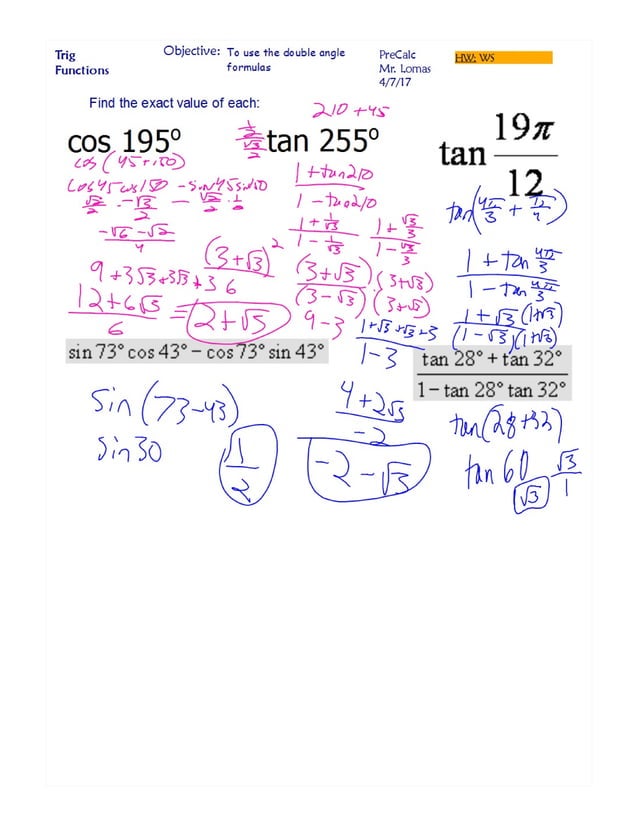 Trig
Functions
Objective: To use the double angle
formulas
PreCalc
Mr. Lomas
4/7/17
HW: WS
Find the exact value of each:
cos 195º
cos (45+150)
cos45cos150 - sin45sin150
√2/2 · -√3/2 - √2/2 · 1/2
-√6-√2/4
210 +45
1/2/√3/2
tan 255º
1+tan210/1-tan210
1+1/√3/1-1/√3
1+√3/3/1-√3/3
(3+√3)/(3-√3) · (3+√3)/(3+√3)
(3+√3)²/6
9-3
9+3√3+3√3+3
12+6√3/6 = 2+√3
tan 19π/12
tan(4π/3 + π/4)
1+tan 4π/3/1-tan 4π/3
1+√3 (1+√3)/(1-√3)(1+√3)
1+√3+√3+3/1-3
4+2√3/-2
-2-√3
sin 73° cos 43° − cos 73° sin 43°
sin(73-43)
sin30
1/2
tan 28° + tan 32°/1− tan 28° tan 32°
tan(28+32)
tan 60 √3/1
√3